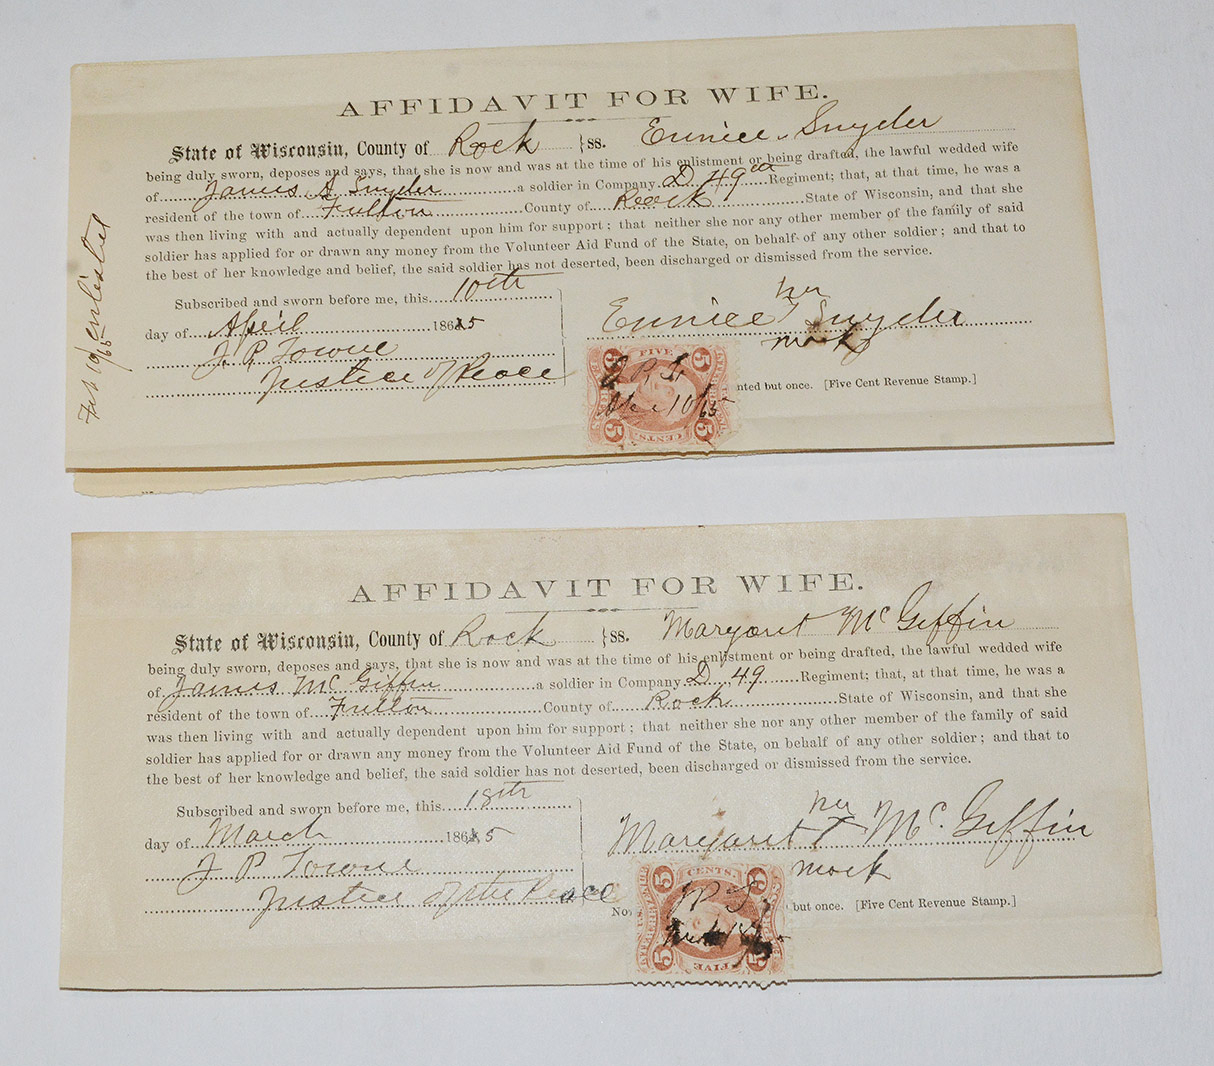 AFFIDAVIT FOR WIFE.
State of Wisconsin, County of Rock }ss. Eunice Snyder
being duly sworn, deposes and says, that she is now and was at the time of his enlistment or being drafted, the lawful wedded wife
of James S Snyder a soldier in Company D 49th Regiment; that, at that time, he was a
resident of the town of Fulton County of Rock State of Wisconsin, and that she
was then living with and actually dependent upon him for support; that neither she nor any other member of the family of said
soldier has applied for or drawn any money from the Volunteer Aid Fund of the State, on behalf of any other soldier; and that to
the best of her knowledge and belief, the said soldier has not deserted, been discharged or dismissed from the service.
Subscribed and sworn before me, this 10th
day of April 1865
J. P. Towne
Justice of Peace
her
Eunice Snyder
mark
nted but once. [Five Cent Revenue Stamp.]
5 FIVE 5
5 CENTS. 5
10/65
Feb 19/65 enlisted
AFFIDAVIT FOR WIFE.
State of Wisconsin, County of Rock }ss. Margaret McGiffin
being duly sworn, deposes and says, that she is now and was at the time of his enlistment or being drafted, the lawful wedded wife
of James McGiffin a soldier in Company D 49 Regiment; that, at that time, he was a
resident of the town of Fulton County of Rock State of Wisconsin, and that she
was then living with and actually dependent upon him for support; that neither she nor any other member of the family of said
soldier has applied for or drawn any money from the Volunteer Aid Fund of the State, on behalf of any other soldier; and that to
the best of her knowledge and belief, the said soldier has not deserted, been discharged or dismissed from the service.
Subscribed and sworn before me, this 18th
day of March 1865
J P Towne
Justice of the Peace
her
Margaret McGiffin
mark
No but once. [Five Cent Revenue Stamp.]
5 CENTS. 5
5 FIVE 5